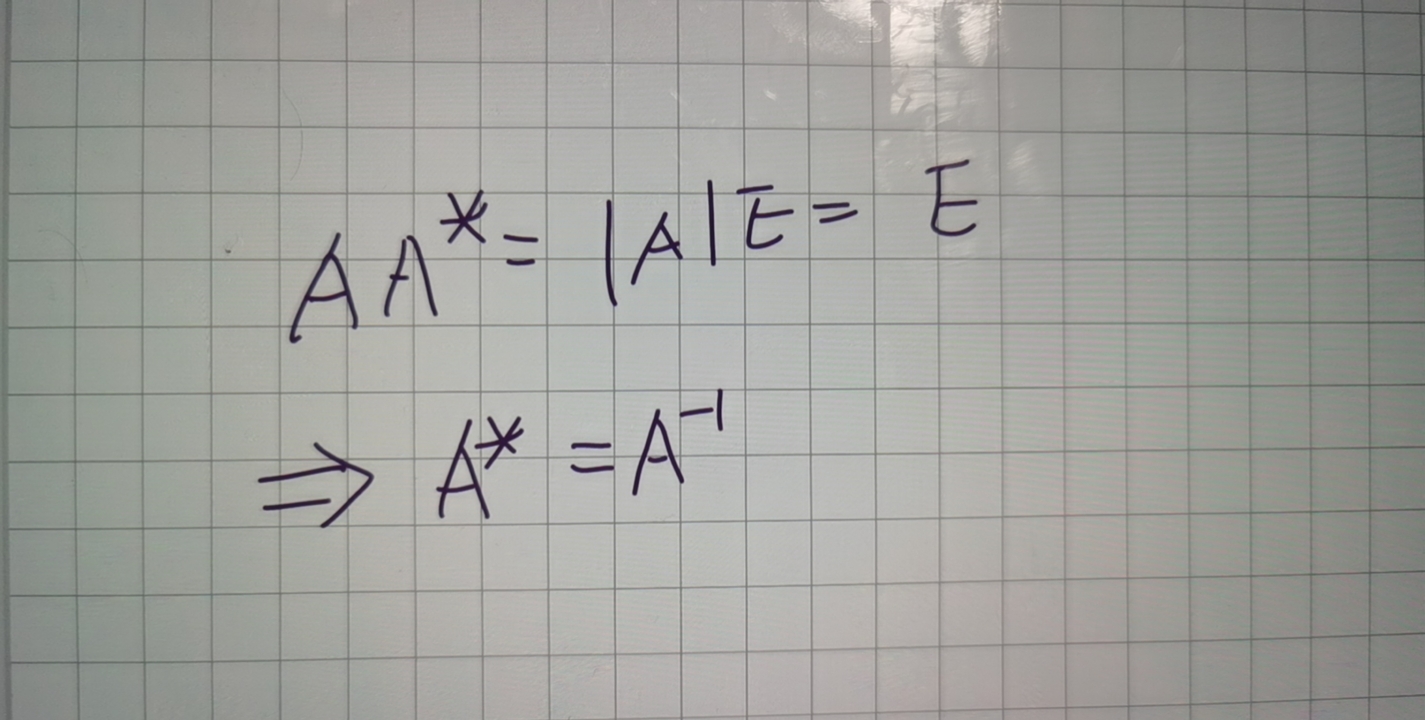 AA* = |A|E = E
⇒ A* = A⁻¹